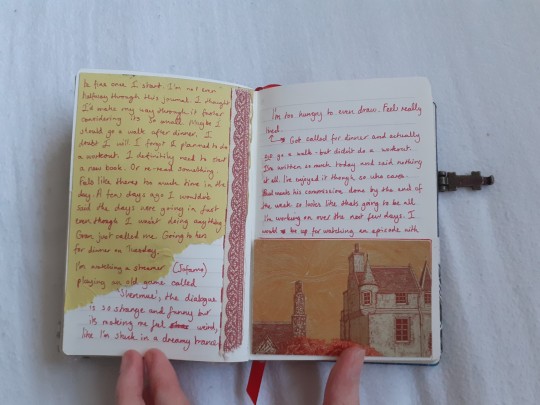 be fine once I start. I'm not even
halfway through this journal. I thought
I'd make my way through it faster
considering its so small. Maybe I
should go a walk after dinner. I
doubt I will. I forgot I planned to do
a workout. I definitely need to start
a new book. Or re-read something.
Feels like theres too much time in the
day. A few days ago I wouldn't
said the days were going in fast
even though I wasn't doing anything
Gran just called me. Going to hers
for dinner on Tuesday.
I'm watching a streamer
playing an old game called
'Shenmue', the dialogue
is so strange and funny but
its making me feel weird,
like I'm stuck in a dreamy trance
I'm too hungry to even draw. Feel really
tired.
Got called for dinner and actually
go a walk - but didn't do a workout.
I've written so much today and said nothing
at all. I've enjoyed it though, so who cares.
wants his commission done by the end of
the week so looks like thats going to be all
I'm working on over the next few days. I
would be up for watching an episode with